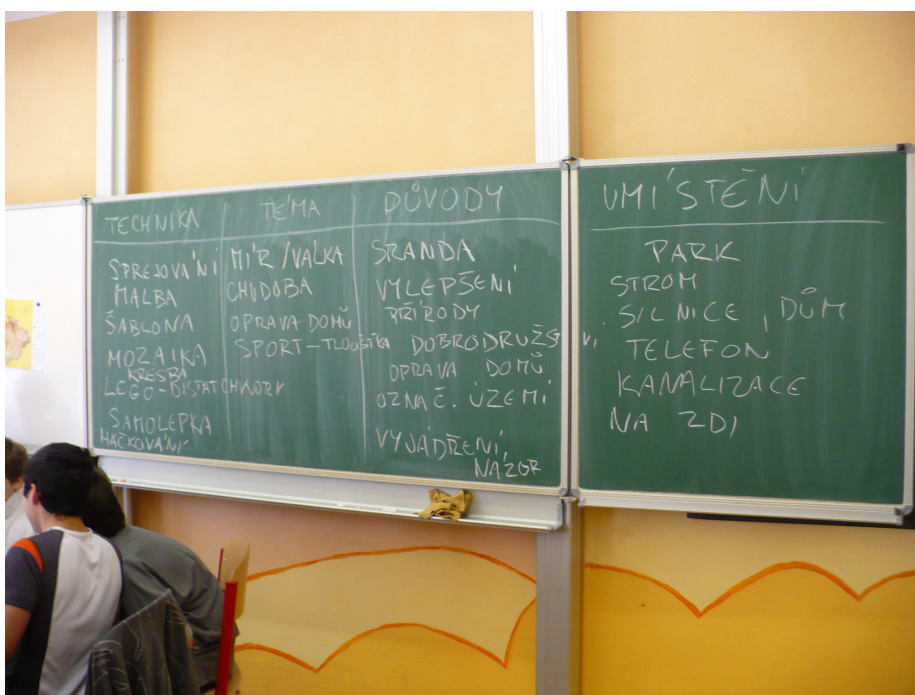 TECHNIKA
SPREJOVÁNÍ
MALBA
ŠABLONA
MOZAIKA
KRESBA
LEGO-DISPATCHWORK
SAMOLEPKA
HÁČKOVÁNÍ
TÉMA
MÍR/VÁLKA
CHUDOBA
OPRAVA DOMŮ
SPORT-TLOUŠŤKA
DŮVODY
SRANDA
VYLEPŠENÍ
PŘÍRODY
DOBRODRUŽSTVÍ
OPRAVA DOMŮ
OZNAČ. ÚZEMÍ
VYJÁDŘENÍ
NÁZOR
UMÍSTĚNÍ
PARK
STROM
SILNICE, DŮM
TELEFON
KANALIZACE
NA ZDI